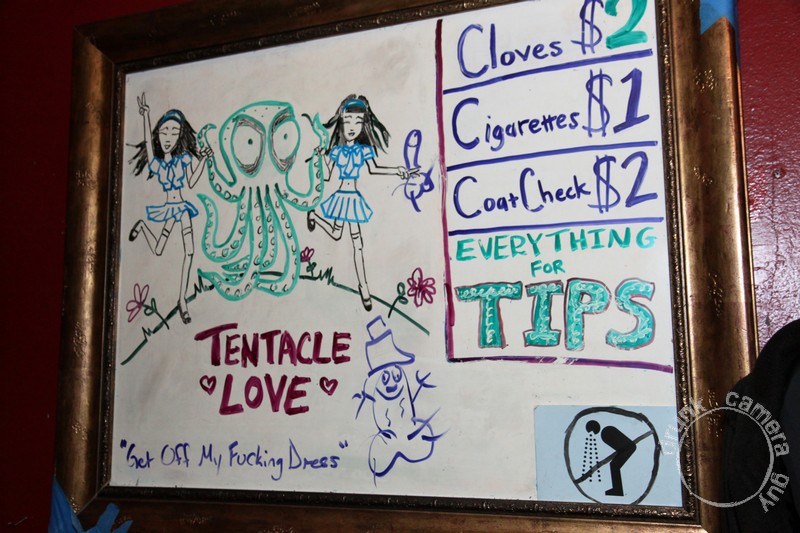 Cloves $2
Cigarettes $1
Coat Check $2
EVERYTHING
FOR
TIPS
TENTACLE
LOVE
"Get Off My Fucking Dress"
drunk camera guy